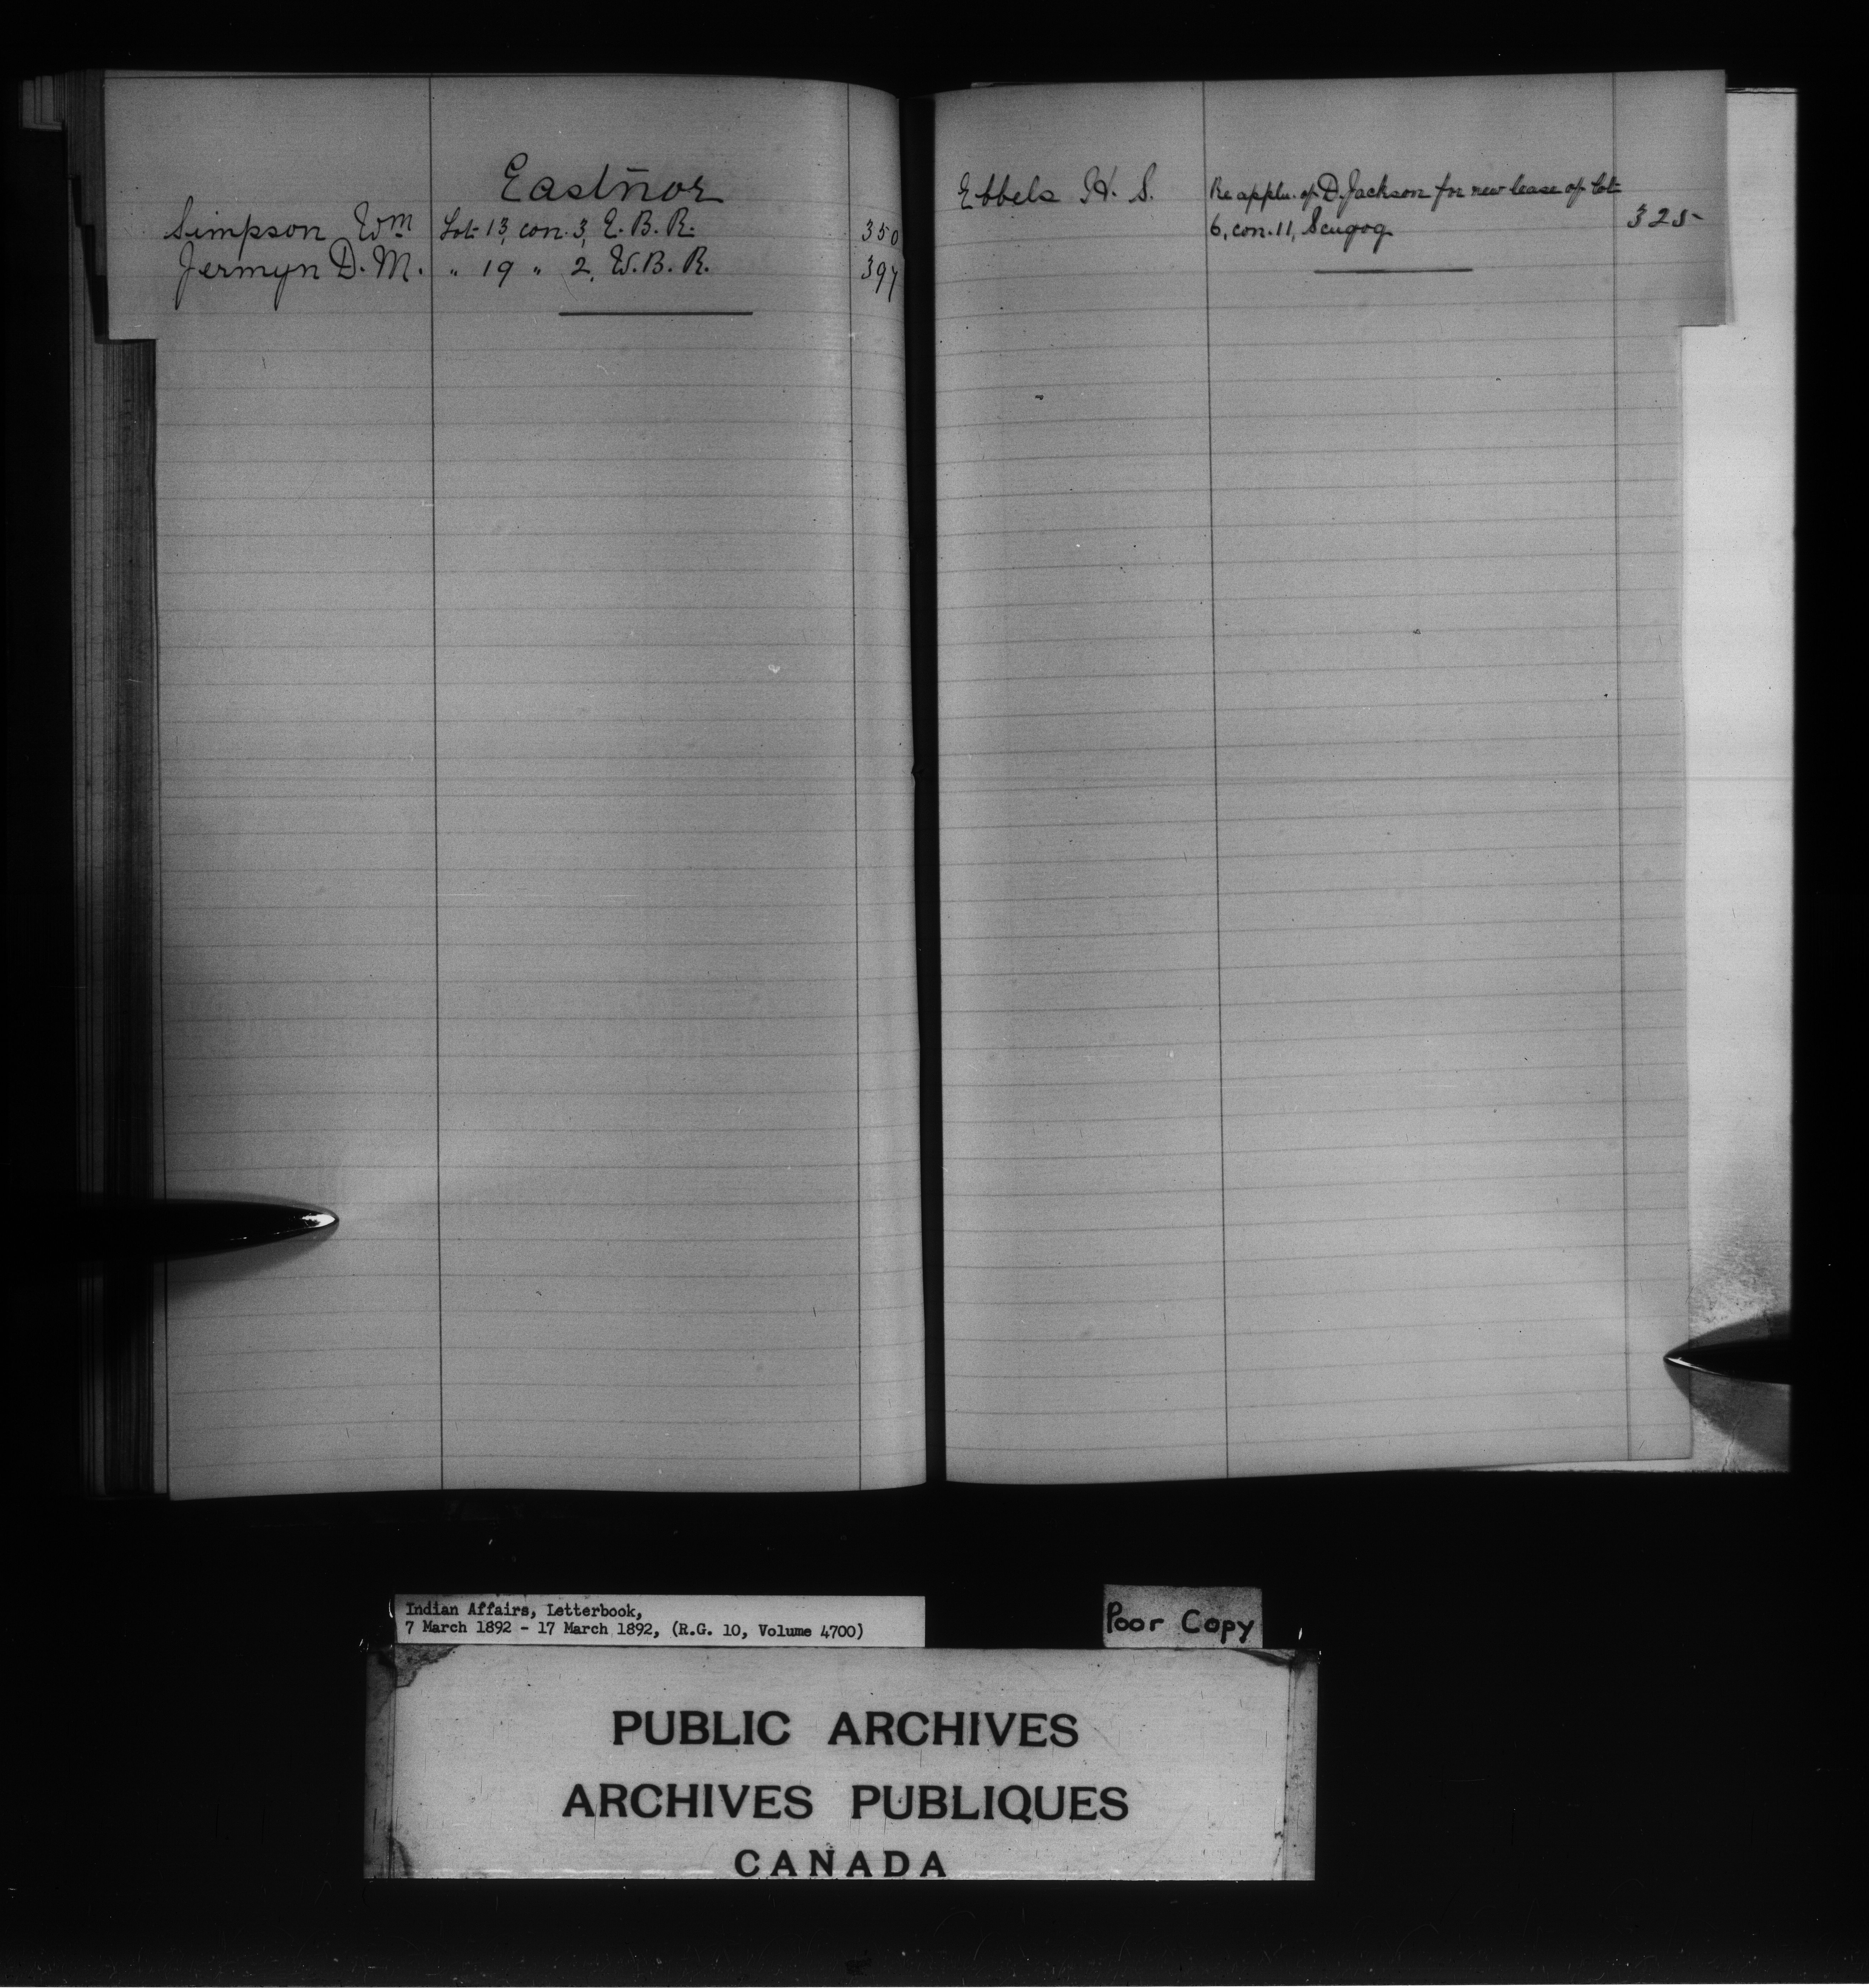 Eastnor
Simpson Wm Lot 13, con. 3, E. B. R. 350
Jermyn D. M. " 19 " 2, W. B. R. 397
Ebbels H. S. Re appln. of D. Jackson for new lease of lot
6, con. 11, Scugog 325
Indian Affairs, Letterbook,
7 March 1892 - 17 March 1892, (R.G. 10, Volume 4700)
Poor Copy
PUBLIC ARCHIVES
ARCHIVES PUBLIQUES
CANADA